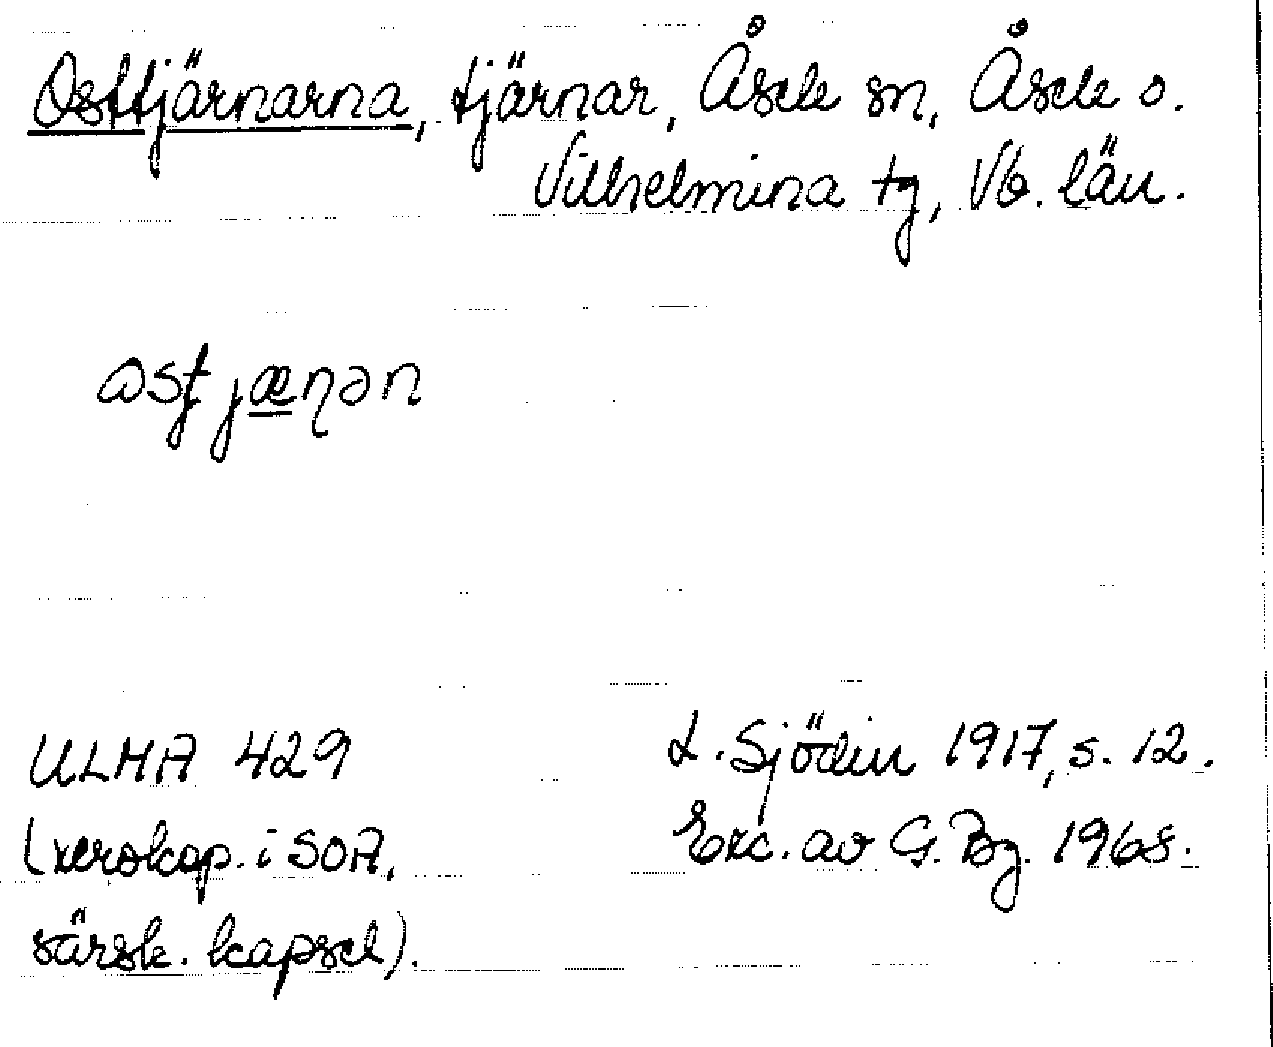 Osttjärnarna, tjärnar, Åsele sn, Åsele o.
Vilhelmina tg, Vb. län.
ULMA 429
(xerokop. i SOA,
särsk. kapsel).
L. Sjödin 1917, s. 12.
Exc. av G. Bg. 1968.